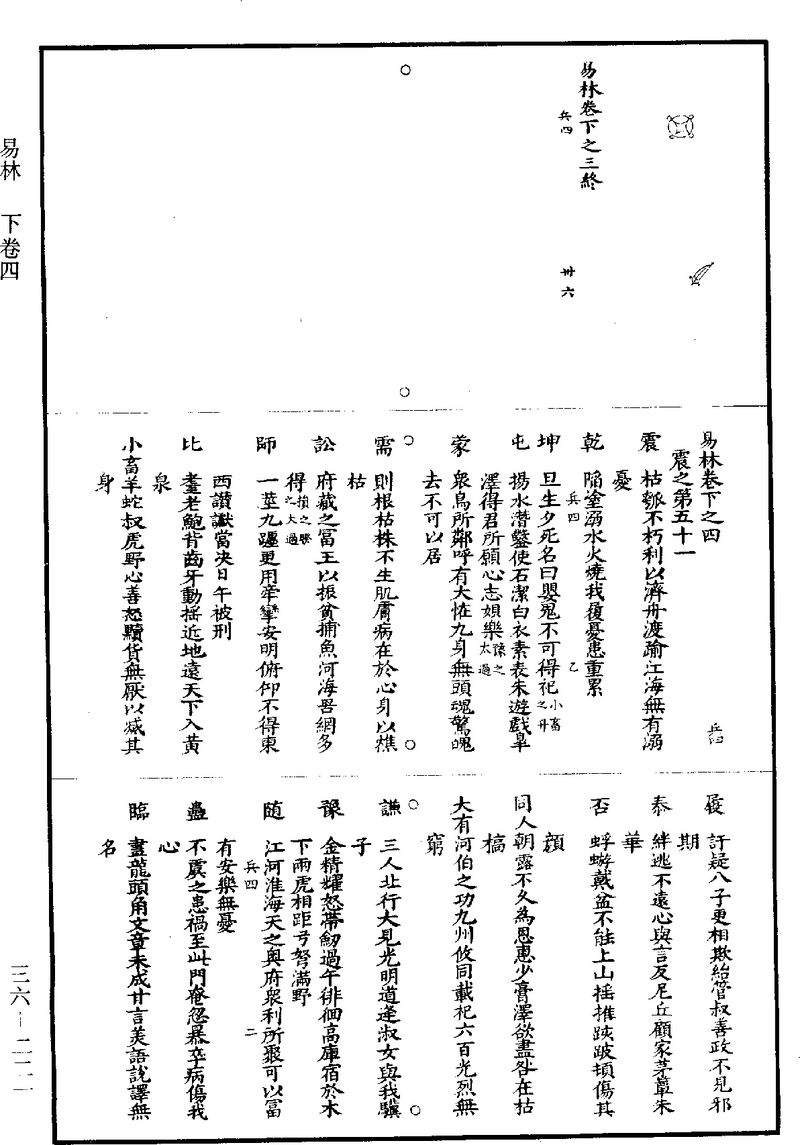 易林卷下之三終
兵四
卅六
易林卷下之四
兵四
震之第五十一
震 枯瓠不朽利以濟舟渡踰江海無有溺
憂
乾 陷塗溺水火燒我履憂患重累
兵四
乙
坤 旦生夕死名曰嬰鬼不可得祀小畜之升
屯 揚水潛鑿使石潔白衣素表朱遊戲皐
澤得君所願心志娛樂豫之大過
蒙 衆鳥所鄰呼有大怪九身無頭魂驚魄
去不可以居
需 則根枯株不生肌膚病在於心身以燋
枯
訟 府藏之冨王以振貧捕魚河海罟網多
得損之騤之大過
師 一莖九躔更用牽攣安明俯仰不得東
西讚讞當决日午被刑
比 耋老鮑背齒牙動摇近地遠天下入黄
泉
小畜羊蛇叔虎野心善怒黷貨無厭以滅其
身
履 訐疑八子更相欺紿管叔善政不見邪
期
泰 絆逃不遠心與言反尼丘顧家茅蕈朱
華
否 蜉蝣戴盆不能上山摇推跌跛頓傷其
顔
同人朝露不久為恩惠少膏澤欲盡咎在枯
槁
大有河伯之功九州攸同載祀六百光烈無
窮
謙 三人北行大見光明道逢淑女與我驥
子
豫 金精耀怒帶劒過午徘徊高庫宿於木
下兩虎相距弓弩滿野
随 江河淮海天之奥府衆利所聚可以冨
兵四
二
有安樂無憂
蠱 不虞之患禍至此門奄忽暴卒病傷我
心
臨 畫龍頭角文章未成甘言美語說譯無
名
易林 下卷四
三六－二一二